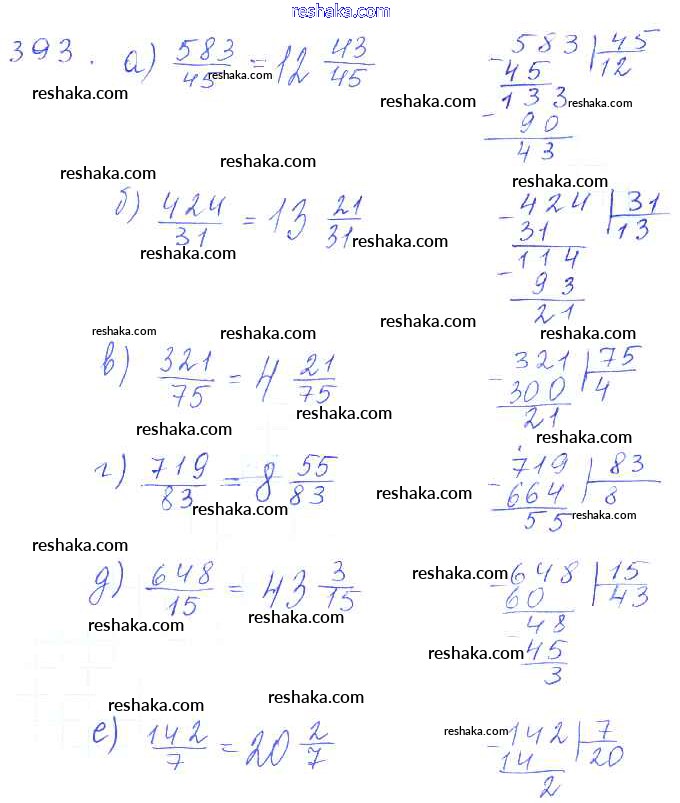 reshaka.com
393. а) 583/45 = 12 43/45
583 45
- 45 12
133
- 90
43
reshaka.com
reshaka.com
reshaka.com
reshaka.com
reshaka.com
reshaka.com
reshaka.com
б) 424/31 = 13 21/31
- 424 31
31 13
114
- 93
21
reshaka.com
reshaka.com
reshaka.com
reshaka.com
reshaka.com
reshaka.com
в) 321/75 = 4 21/75
- 321 75
300 4
21
reshaka.com
reshaka.com
reshaka.com
г) 719/83 = 8 55/83
- 719 83
664 8
55
reshaka.com
reshaka.com
reshaka.com
reshaka.com
д) 648/15 = 43 3/15
- 648 15
60 43
48
- 45
3
reshaka.com
reshaka.com
reshaka.com
reshaka.com
reshaka.com
reshaka.com
reshaka.com
е) 142/7 = 20 2/7
- 142 7
14 20
2
reshaka.com